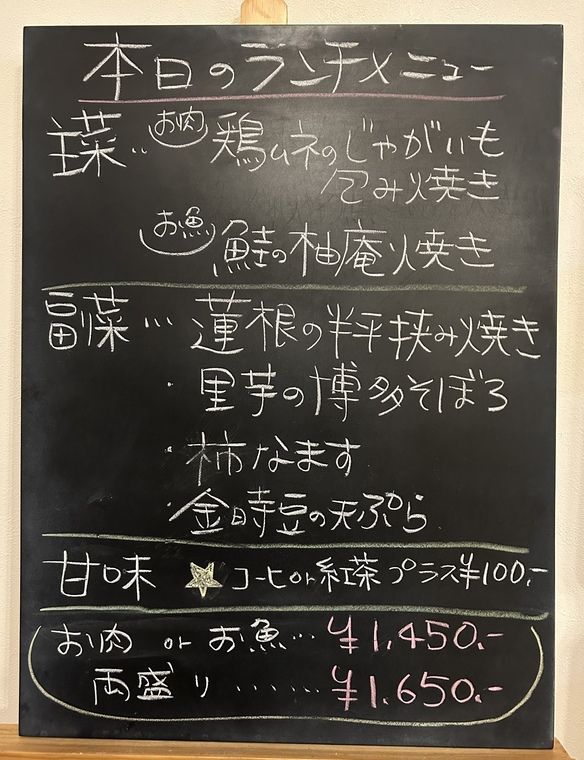 本日のランチメニュー
主菜‥お肉 鶏ムネのじゃがいも
包み焼き
お魚 鮭の柚庵焼き
副菜… 蓮根の半平挟み焼き
・里芋の博多そぼろ
・柿なます
・金時豆の天ぷら
甘味 ★コーヒor紅茶プラス¥100.-
お肉 or お魚…¥1.450.-
両盛り ......¥1.650.-